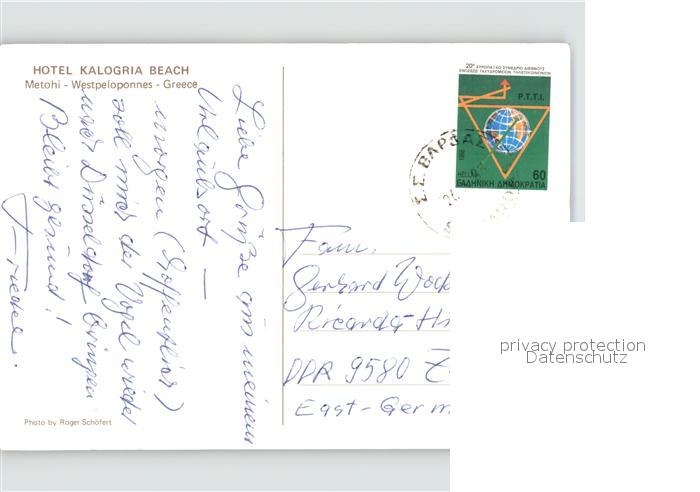 HOTEL KALOGRIA BEACH
Metohi - Westpeloponnes - Greece
Liebe Grüße aus meinem
Urlaubsort —
morgen (hoffentlich)
soll mich der Vogel wieder
nach Düsseldorf bringen
Bleibt gesund!
Photo by Roger Schöfert
20° ΕΥΡΩΠΑΪΚΟ ΣΥΝΕΔΡΙΟ ΔΙΕΘΝΟΥΣ
ΕΝΩΣΕΩΣ ΤΑΧΥΔΡΟΜΕΙΩΝ ΤΗΛΕΠΙΚΟΙΝΩΝΙΩΝ
P.T.T.I.
1988
HELLAS
60
ΕΛΛΗΝΙΚΗ ΔΗΜΟΚΡΑΤΙΑ
Fam.
Gerhard
Ricarda
DDR 9580
East-Germ
privacy protection
Datenschutz